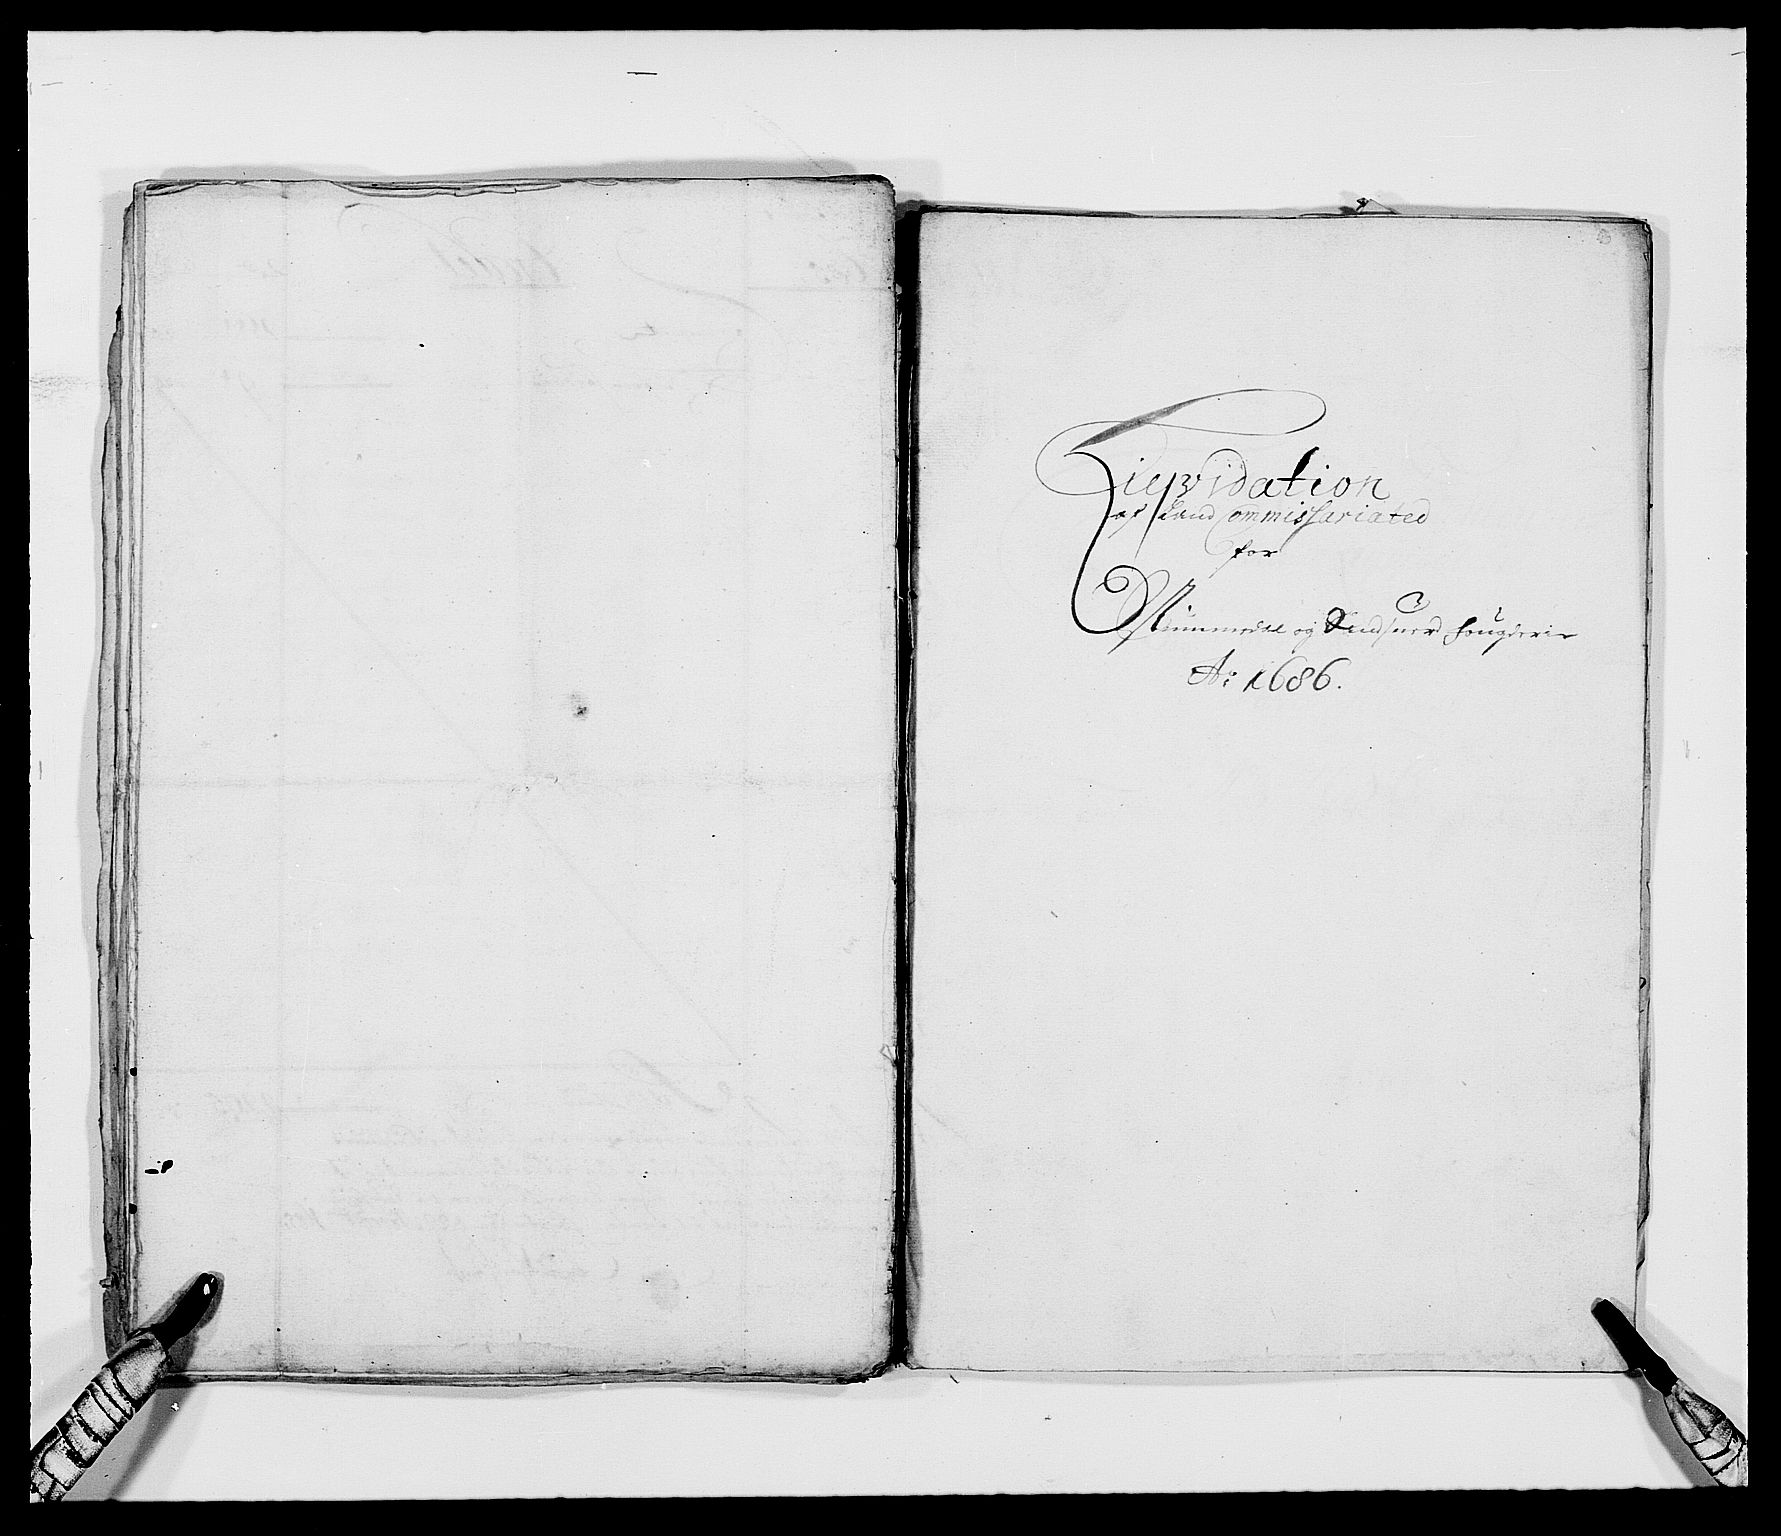 Liqvidation
af Land Commissariated
for
Nummedal og Sandsverd fougderie
Ao: 1686.